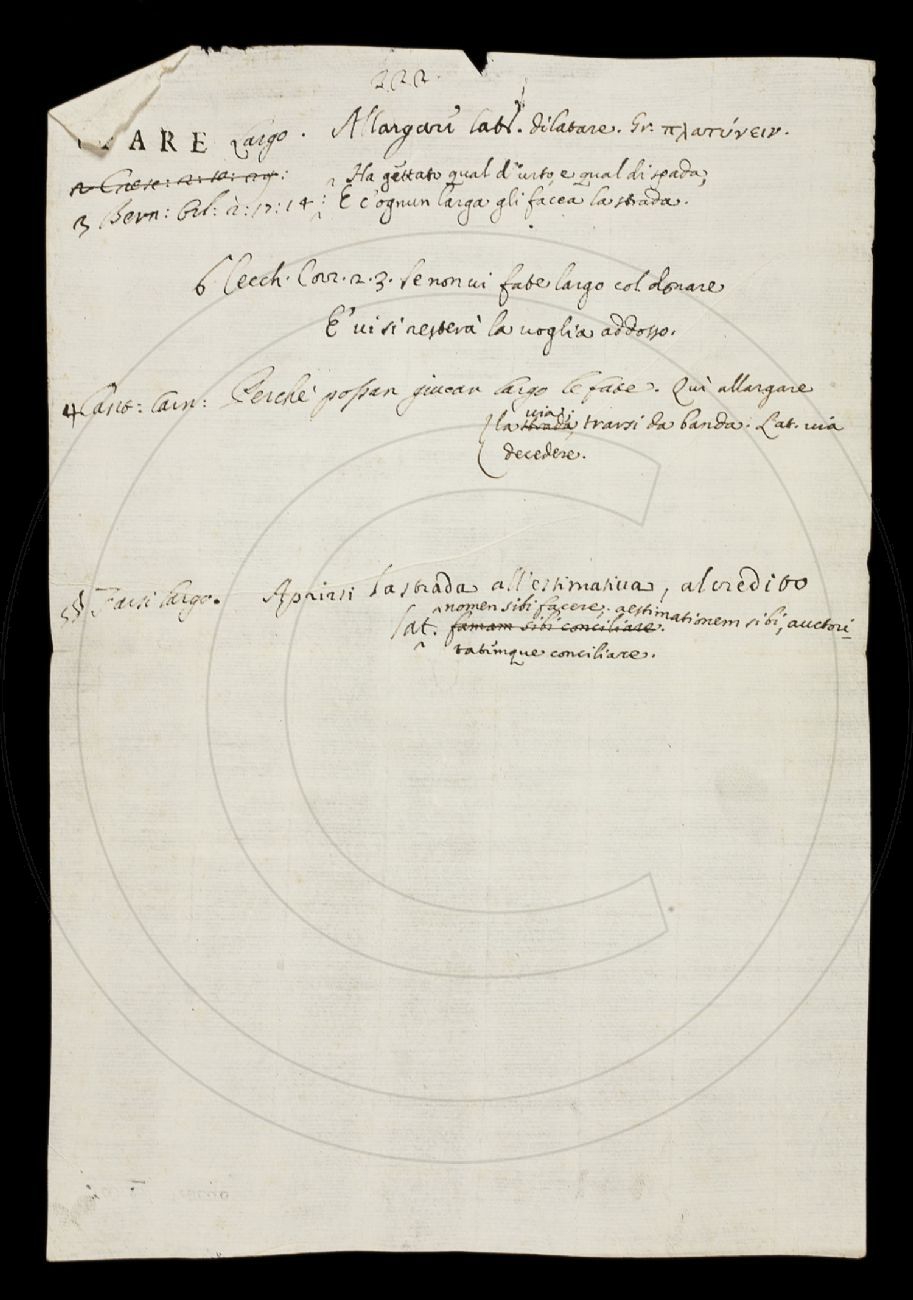 222.
ARE Largo. Allargare Lat. dilatare. Gr. πλατύνειν.
Ha gettato qual d'urto, e qual di spada,
3 Bern: Orl: 2: 17: 14: E c'ognun larga gli facea la strada.
6 Cecch. Corr. 2. 3. Se non vi fate largo col donare
E' vi si resterà la voglia addosso.
4 Cant: Carn: Perchè possan giucar largo le fate. Quì allargare
via,
la strada, trarsi da banda. Lat. via
decedere.
§§ Farsi largo. Aprirsi la strada all'estimativa, al credito
nomen sibi facere, aestimationem sibi, auctori-
Lat. famam sibi conciliare.
tatemque conciliare.